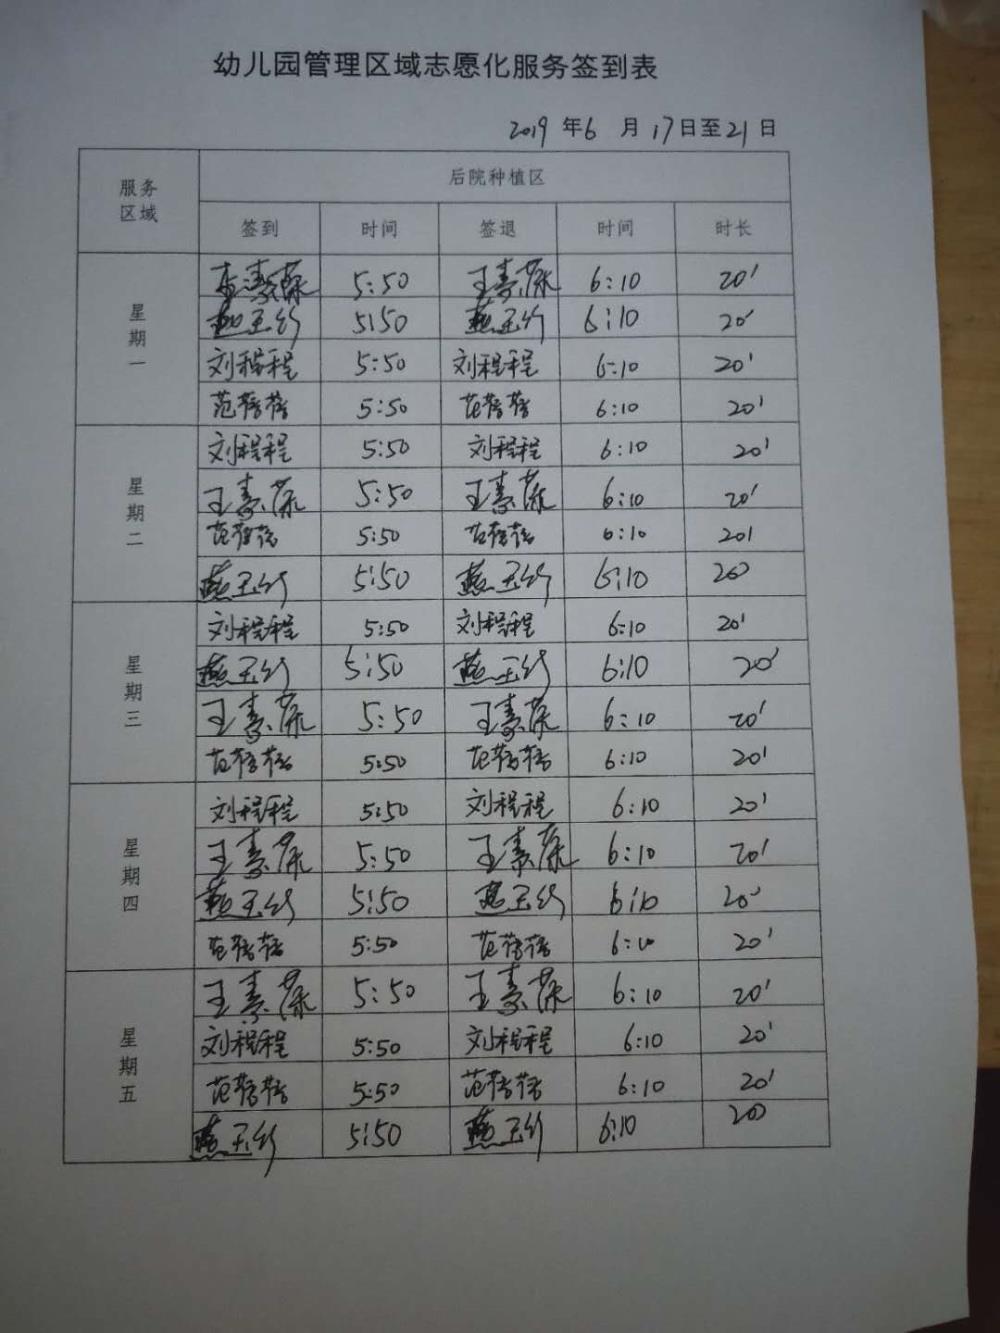 幼儿园管理区域志愿化服务签到表
2019 年 6 月 17日至 21 日
服务区域 后院种植区
签到 时间 签退 时间 时长
星期一
5:50 王素 6:10 20'
5:50 6:10 20'
刘程程 5:50 刘程程 6:10 20'
范蓓蓓 5:50 范蓓蓓 6:10 20'
星期二
刘程程 5:50 刘程程 6:10 20'
王素 5:50 王素 6:10 20'
范蓓蓓 5:50 范蓓蓓 6:10 20'
5:50 6:10 20'
星期三
刘程程 5:50 刘程程 6:10 20'
5:50 6:10 20'
王素 5:50 王素 6:10 20'
范蓓蓓 5:50 范蓓蓓 6:10 20'
星期四
刘程程 5:50 刘程程 6:10 20'
王素 5:50 王素 6:10 20'
5:50 6:10 20'
范蓓蓓 5:50 范蓓蓓 6:10 20'
星期五
王素 5:50 王素 6:10 20'
刘程程 5:50 刘程程 6:10 20'
范蓓蓓 5:50 范蓓蓓 6:10 20'
5:50 6:10 20'